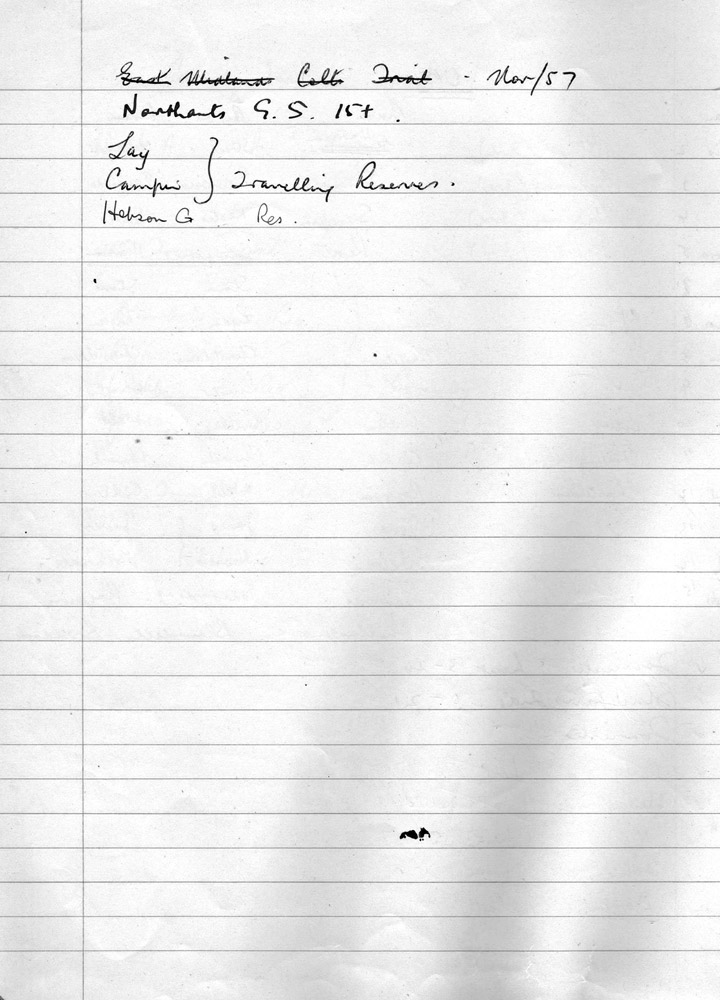 East Midland Colts Trial - Nov/57
Northants G. S. 15+.
Lay
Campin } Travelling Reserves.
Hebson G Res.